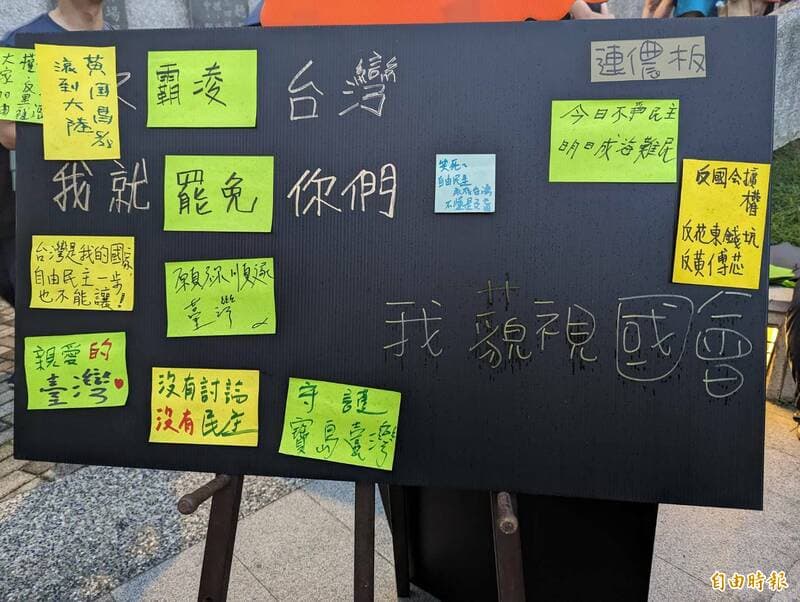 黃国昌
滾到大陸
霸凌 台灣
我就 罷免 你們
連儂板
今日不爭民主
明日成海難民
笑死、
自由民主
台灣
反國会擴
權
反花東錢坑
反黃傅芯
台灣是我的國家,
自由民主一步
也不能讓!
願 順遂
臺灣
我藐視國會
親愛的
臺灣
沒有討論
沒有民主
守護
寶島臺灣
自由時報